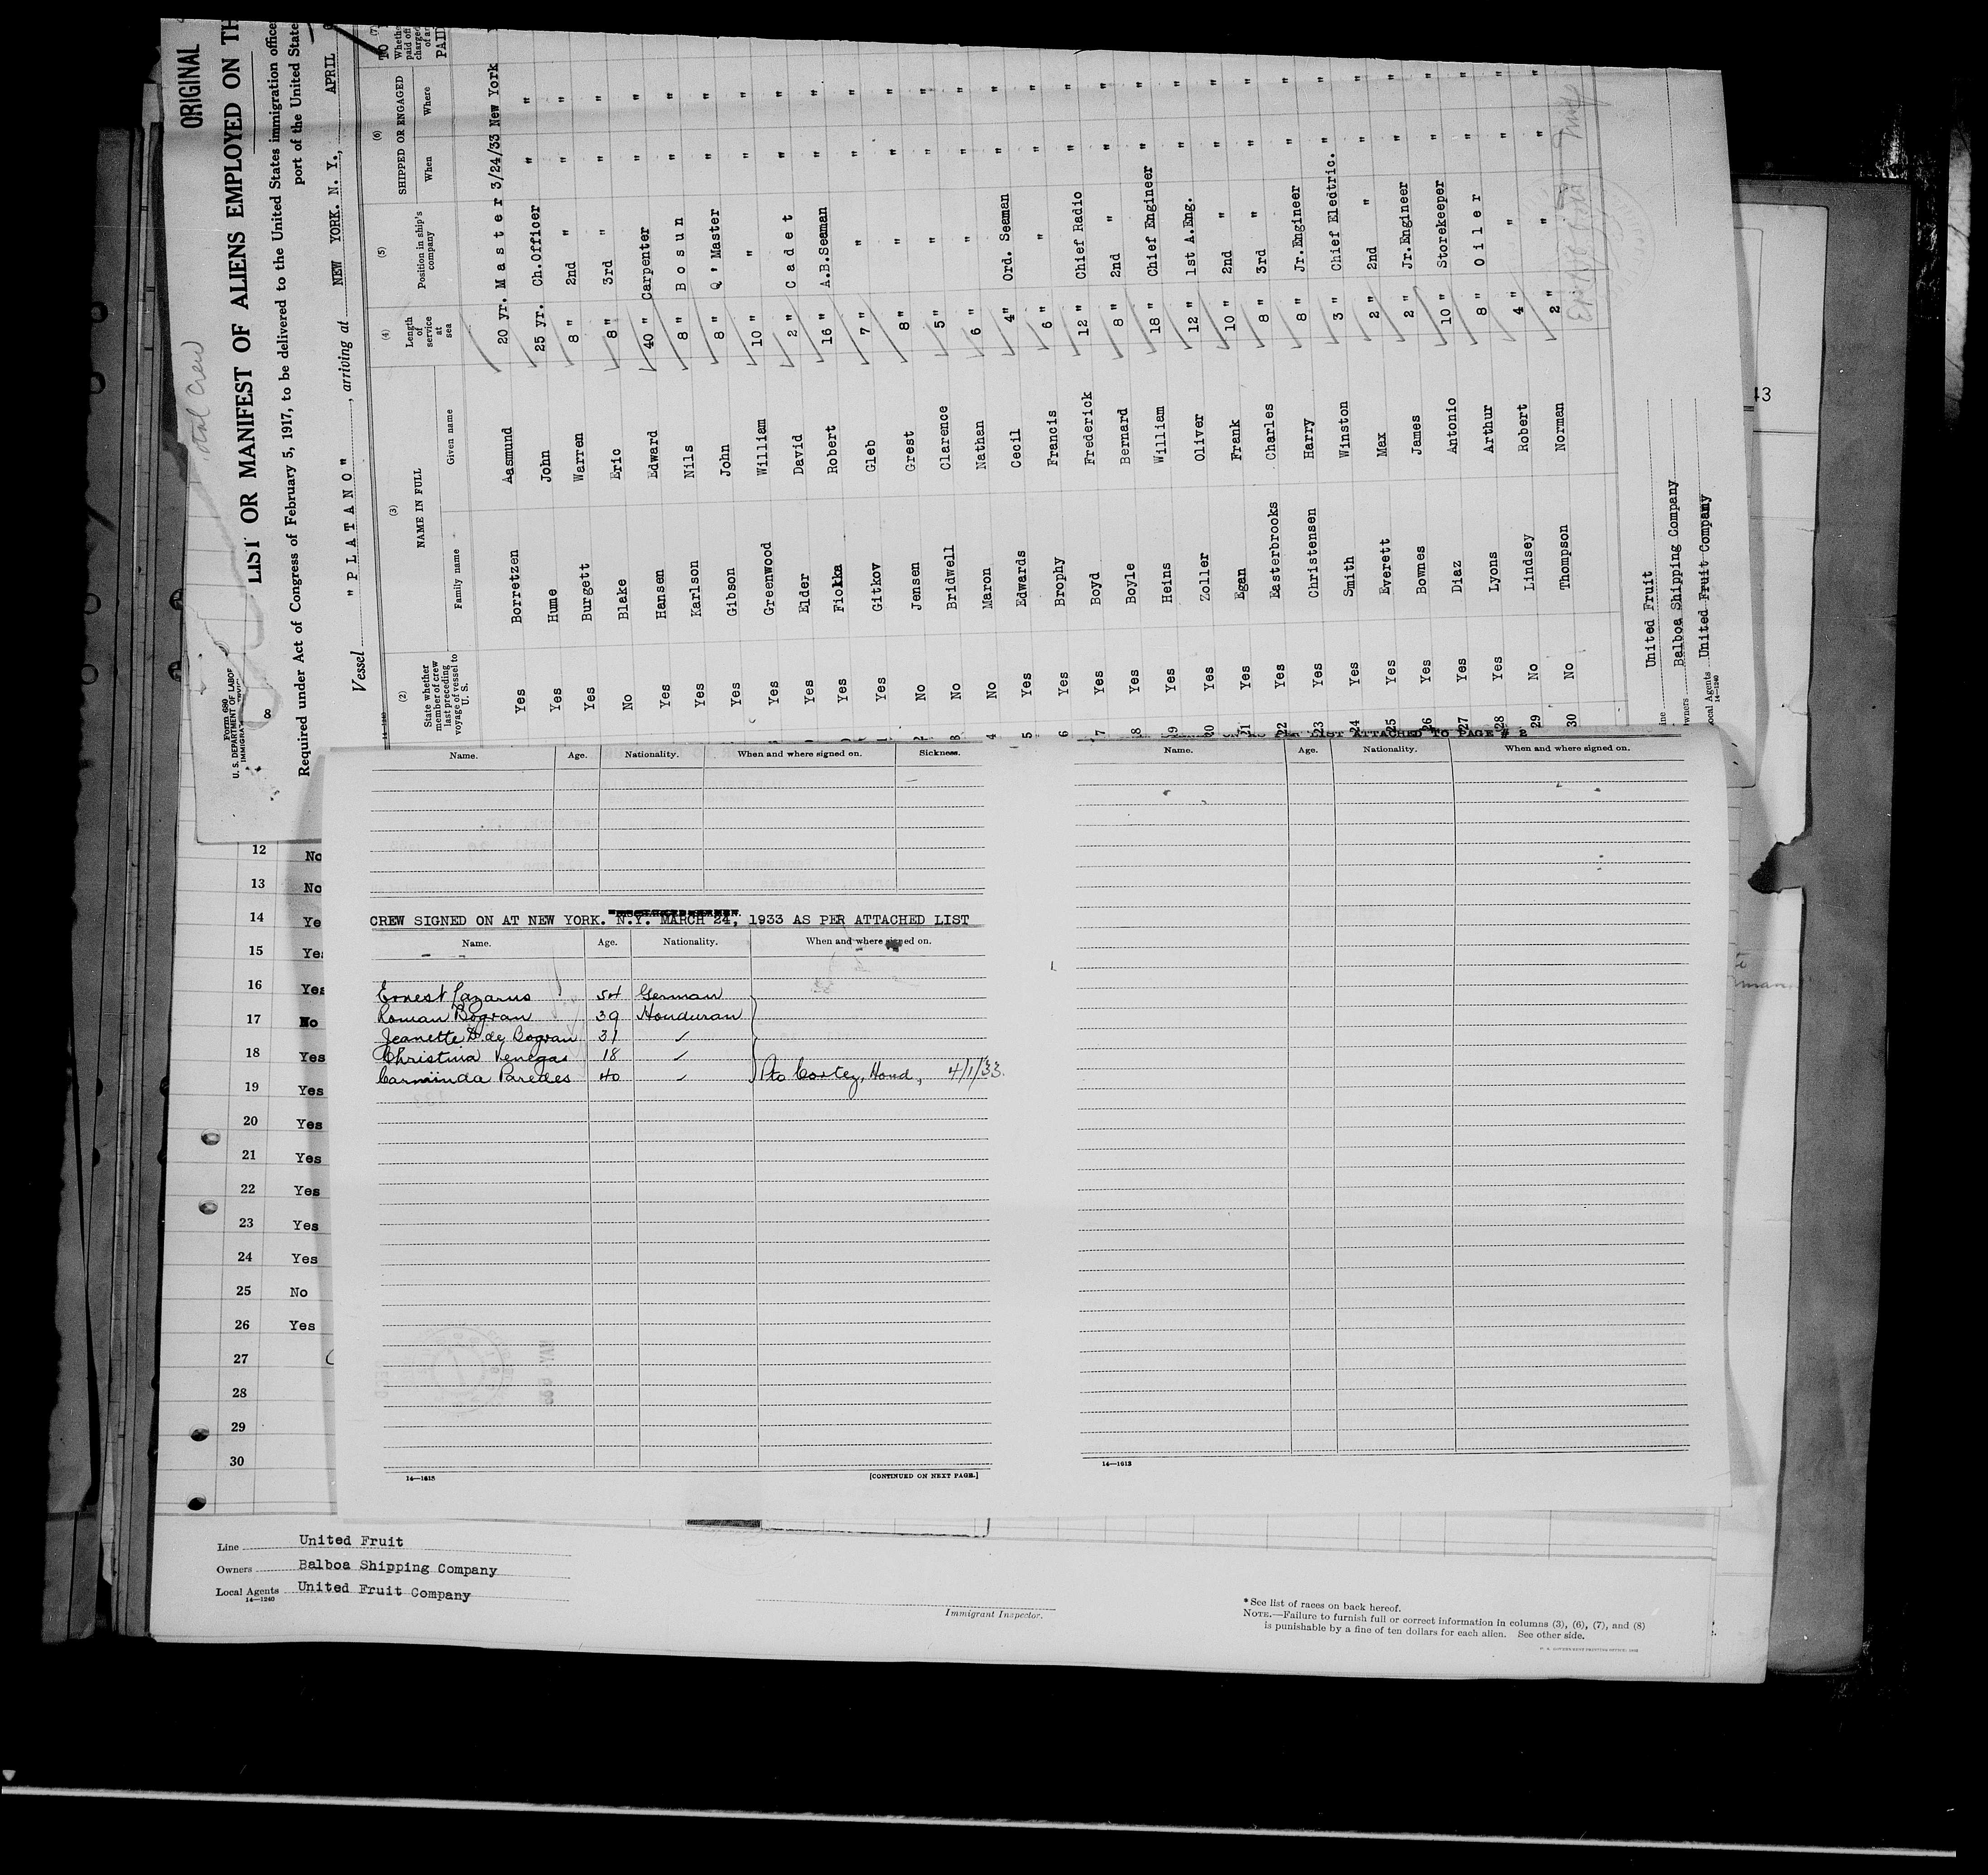 ORIGINAL
Total Crew
Form 680
U. S. DEPARTMENT OF LABOR
8
LIST OR MANIFEST OF ALIENS EMPLOYED ON TH
Required under Act of Congress of February 5, 1917, to be delivered to the United States immigration office
port of the United State
Vessel "PLATANO", arriving at NEW YORK. N. Y., APRIL
14—1240
(2) (3) (4) (5) (6) (7)
State whether member of crew last preceding voyage of vessel to U. S.
NAME IN FULL
Family name Given name
Length of service at sea
Position in ship's company
SHIPPED OR ENGAGED
When Where
PAID
Yes Borretzen Aasmund 20 yr. Master 3/24/33 New York
Yes Hume John 25 yr. Ch.Officer " "
Yes Burgett Warren 8 " 2nd " " "
No Blake Eric 8 " 3rd " " "
Yes Hansen Edward 40 " Carpenter " "
Yes Karlson Nils 8 " Bosun " "
Yes Gibson John 8 " Q'Master " "
Yes Greenwood William 10 " " " "
Yes Elder David 2 " Cadet " "
Yes Fiokka Robert 16 " A.B.Seaman " "
Yes Gitkov Gleb 7 " " " "
No Jensen Grest 8 " " " "
No Bridwell Clarence 5 " " " "
4 No Maron Nathan 6 " " " "
5 Yes Edwards Cecil 4 " Ord. Seaman " "
6 Yes Brophy Francis 6 " " " "
7 Yes Boyd Frederick 12 " Chief Radio " "
8 Yes Boyle Bernard 8 " 2nd " " "
19 Yes Heins William 18 " Chief Engineer " "
20 Yes Zoller Oliver 12 " 1st A.Eng. " "
21 Yes Egan Frank 10 " 2nd " " "
22 Yes Easterbrooks Charles 8 " 3rd " " "
23 Yes Christensen Harry 8 " Jr.Engineer " "
24 Yes Smith Winston 3 " Chief Eledtric. " "
25 Yes Everett Max 2 " 2nd " " "
26 Yes Bownes James 2 " Jr.Engineer " "
27 Yes Diaz Antonio 10 " Storekeeper " "
28 Yes Lyons Arthur 8 " Oiler " "
29 No Lindsey Robert 4 " " " "
30 No Thompson Norman 2 " " " "
United Fruit
Balboa Shipping Company
Local Agents United Fruit Company
14—1240
LIST ATTACHED TO PAGE # 2
Name. Age. Nationality. When and where signed on. Sickness.
Name. Age. Nationality. When and where signed on.
CREW SIGNED ON AT NEW YORK. N.Y. MARCH 24, 1933 AS PER ATTACHED LIST
Name. Age. Nationality. When and where signed on.
Ernest Lazarus 54 German
Roman Bogran 39 Honduran
Jeanette D de Bogran 31 ✓
Christina Venegas 18 ✓
Carminda Paredes 40 ✓ Pto Cortez, Hond, 4/1/33.
14—1613 [CONTINUED ON NEXT PAGE.]
14—1613
12 No
13 No
14 Ye
15 Yes
16 Yes
17 No
18 Yes
19 Yes
20 Yes
21 Yes
22 Yes
23 Yes
24 Yes
25 No
26 Yes
27
28
29
30
Line United Fruit
Owners Balboa Shipping Company
Local Agents United Fruit Company
14—1240
Immigrant Inspector.
* See list of races on back hereof.
NOTE.—Failure to furnish full or correct information in columns (3), (6), (7), and (8)
is punishable by a fine of ten dollars for each alien. See other side.
43